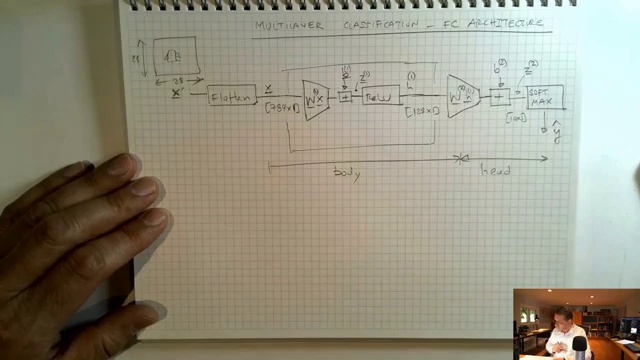 MULTILAYER CLASSIFICATION - FC ARCHITECTURE
28
28
x'
Flatten
x
[784x1]
W(1) x
b(1)
+
z(1)
ReLU
h(1)
[128x1]
b(2)
+
z(2)
[10x1]
SOFT
MAX
ŷ
body
head